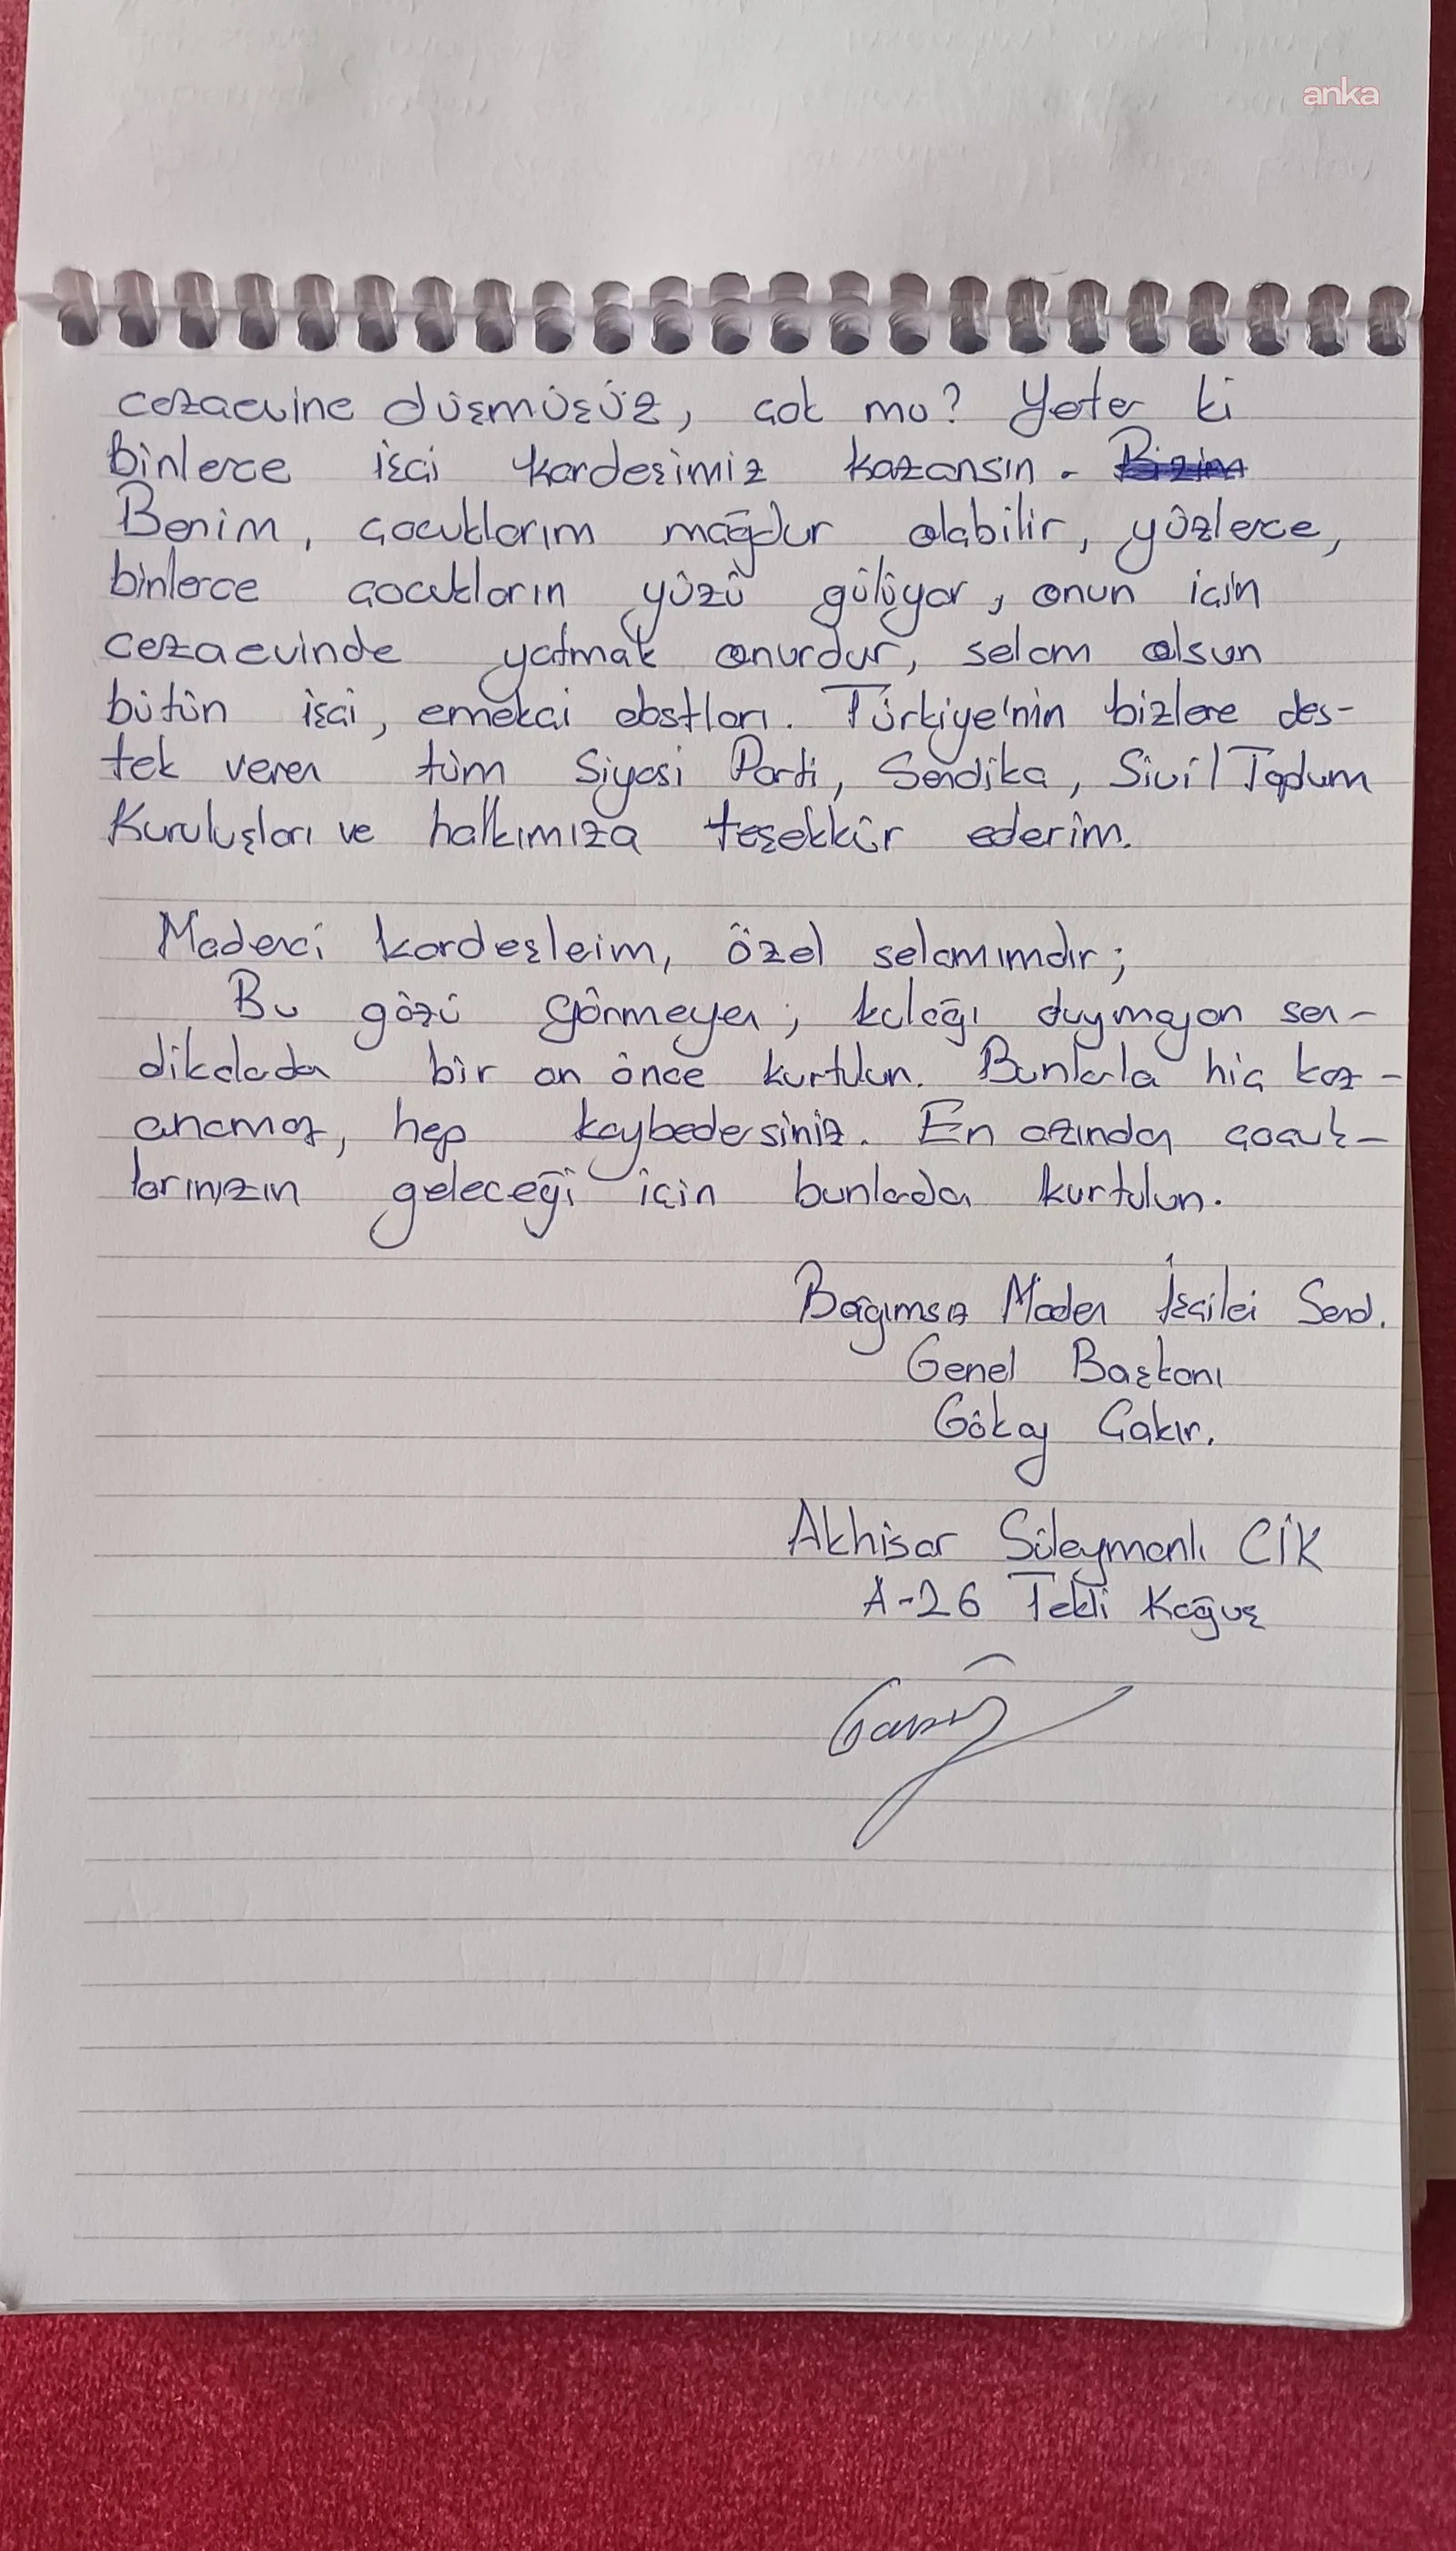 anka
cezaevine düşmüşüz, çok mu? Yeter ki
binlerce işçi kardeşimiz kazansın. Bizim
Benim, çocuklarım mağdur olabilir, yüzlerce,
binlerce çocukların yüzü gülüyor, onun için
cezaevinde yatmak onurdur, selam olsun
bütün işçi, emekçi dostları. Türkiye'nin bizlere des-
tek veren tüm Siyasi Parti, Sendika, Sivil Toplum
Kuruluşları ve halkımıza teşekkür ederim.
Madenci kardeşleim, özel selamımdır;
Bu gözü görmeyen, kulağı duymayan sen-
dikaladan bir an önce kurtulun. Bunlarla hiç kaz-
anamaz, hep kaybedersiniz. En azından çocuk-
larınızın geleceği için bunladan kurtulun.
Bağımsız Maden İşçilei Send.
Genel Başkanı
Gökay Çakır.
Akhisar Süleymanlı CİK
A-26 Tekli Koğuş